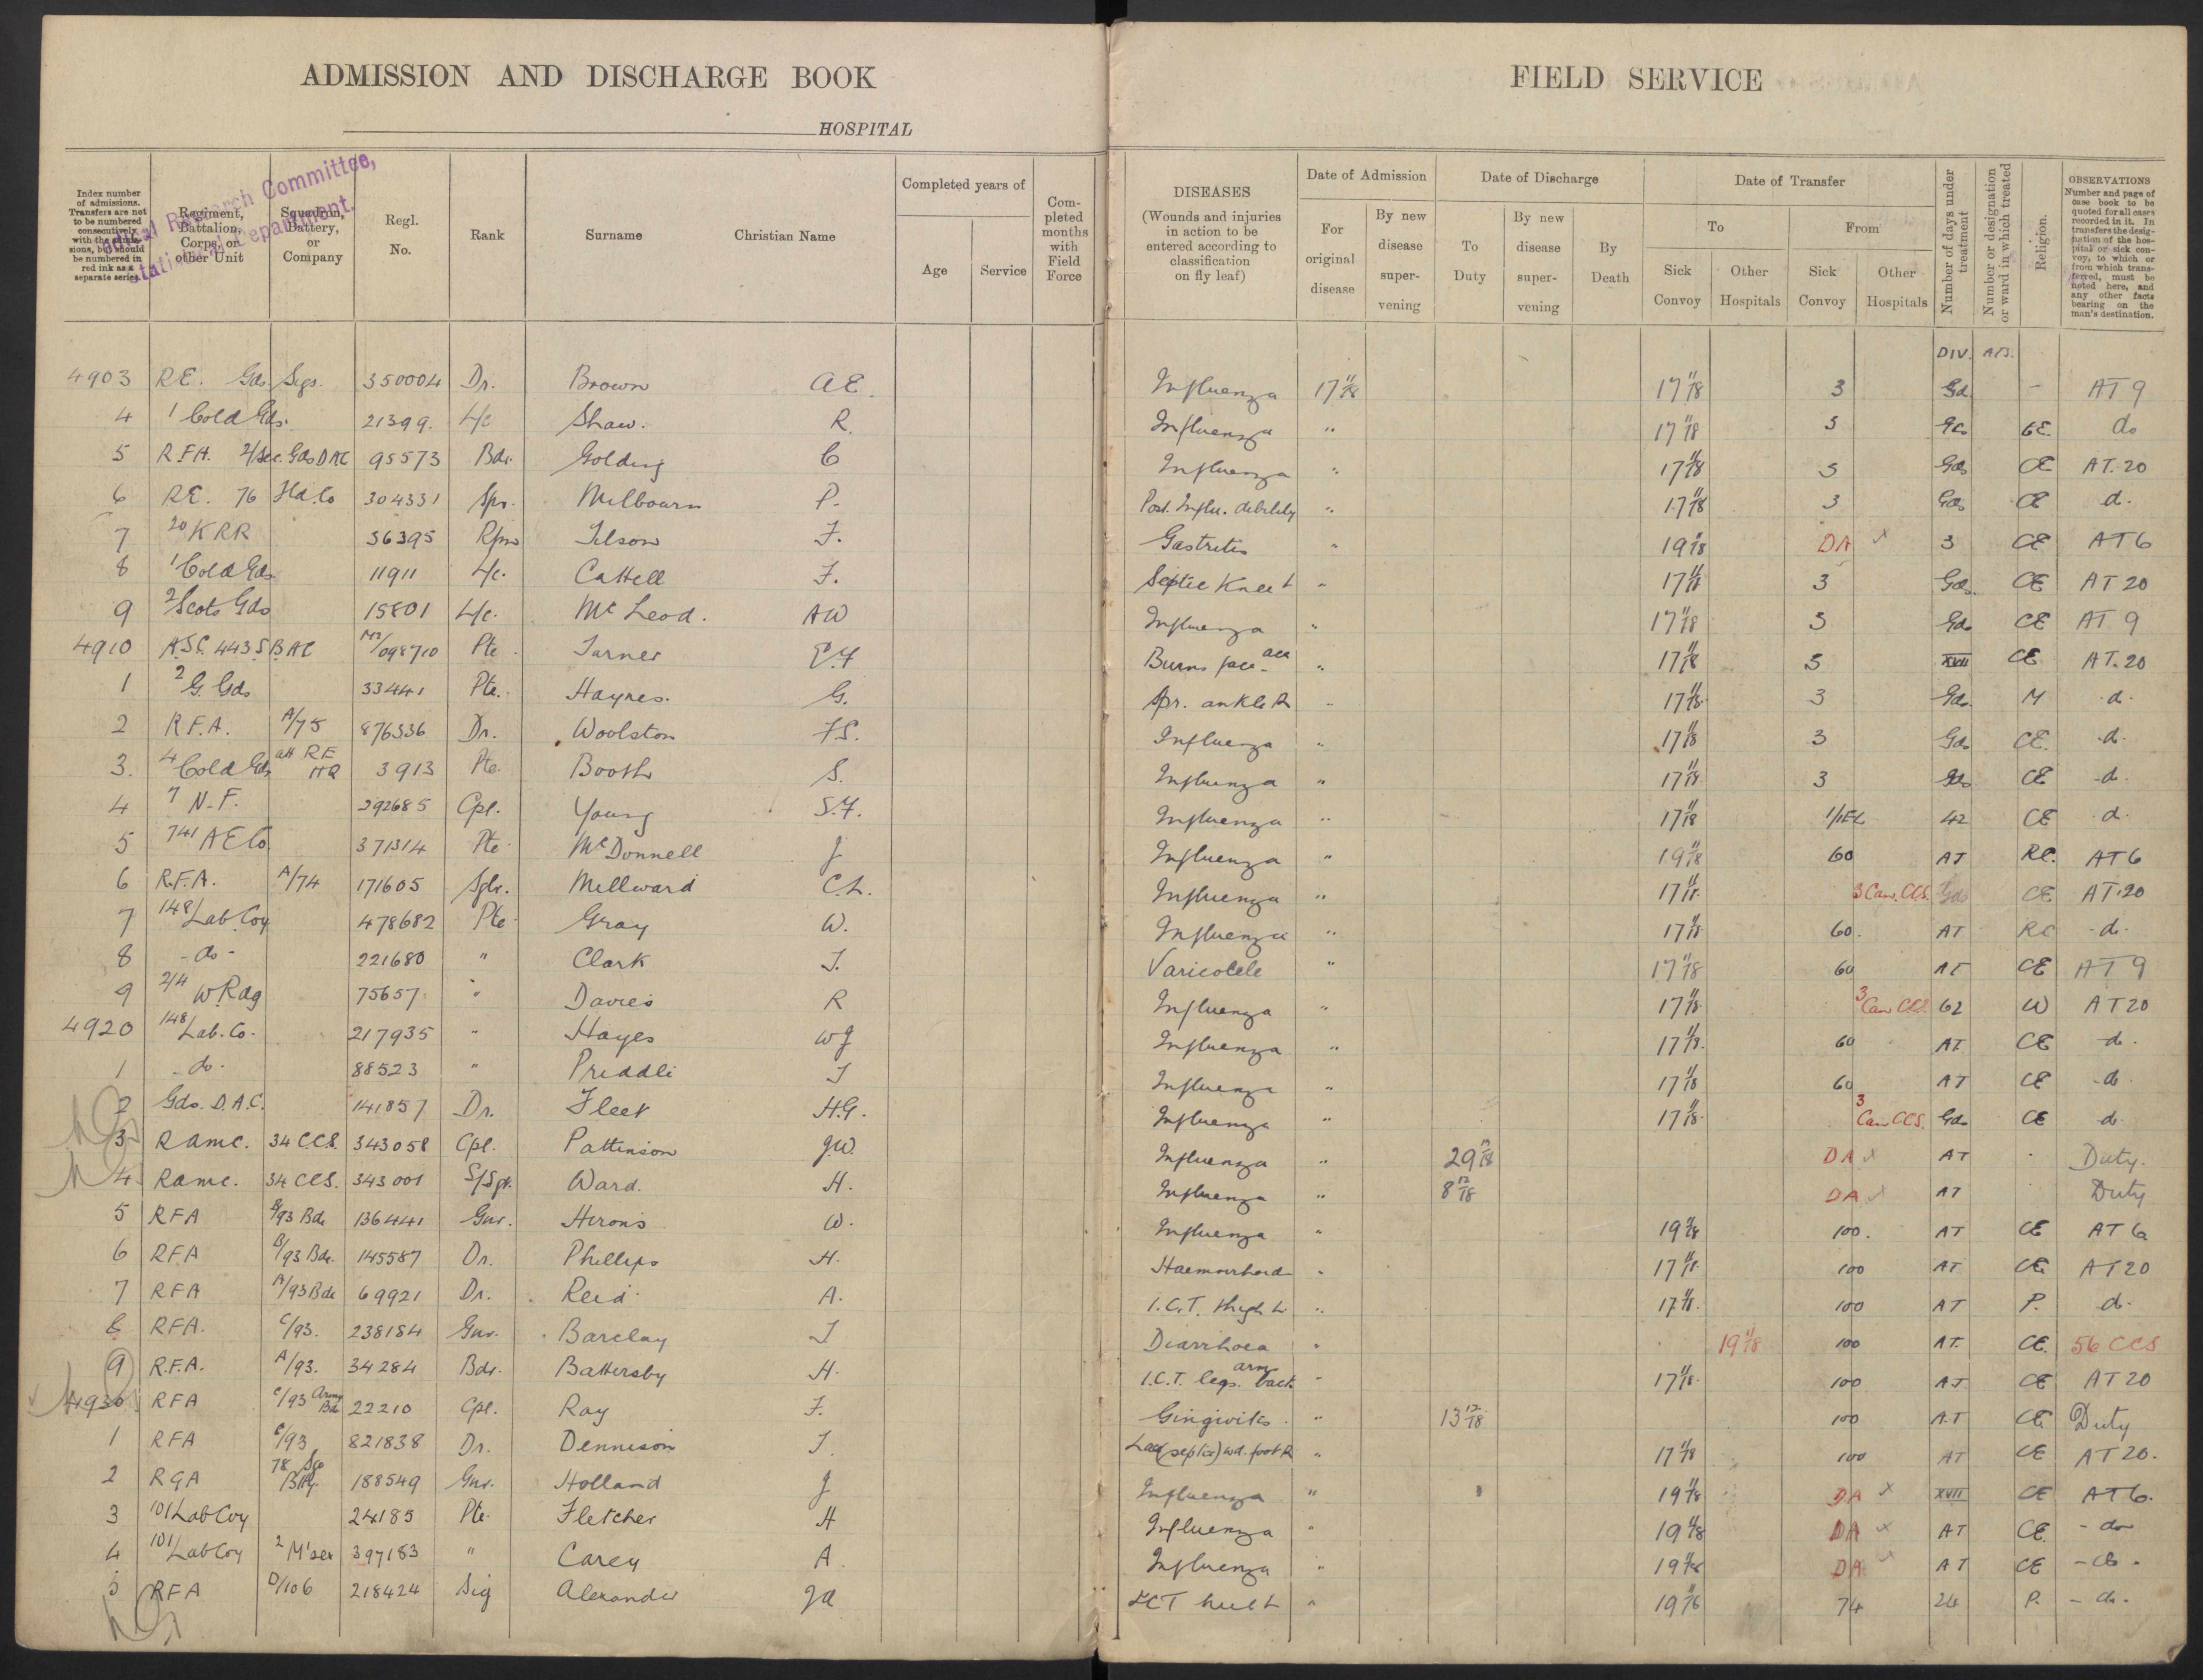 ADMISSION AND DISCHARGE BOOK
HOSPITAL
FIELD SERVICE
Research Committee,
Department.
Index number of admissions. Transfers are not to be numbered consecutively with the admissions, but should be numbered in red ink as a separate series.
Regiment, Battalion, Corps, or other Unit
Squadron, Battery, or Company
Regl. No.
Rank
Surname
Christian Name
Completed years of
Age
Service
Completed months with Field Force
DISEASES
(Wounds and injuries in action to be entered according to classification on fly leaf)
Date of Admission
For original disease
By new disease supervening
Date of Discharge
To Duty
By new disease supervening
By Death
Date of Transfer
To
From
Sick Convoy
Other Hospitals
Sick Convoy
Other Hospitals
Number of days under treatment
Number or designation or ward in which treated
Religion.
OBSERVATIONS
Number and page of case book to be quoted for all cases recorded in it. In transfers the designation of the hospital or sick convoy, to which or from which transferred, must be noted here, and any other facts bearing on the man's destination.
DIV. AT3.
4903 R.E. Gds. Sigs. 350004 Dr. Brown A E. Influenza 17 11/18 17 11/18 3 Gd - AT 9
4 1 Cold Gds. 21399. L/c Shaw. R. Influenza " 17 11/18 3 Gds CE. do
5 R.F.A. 2/Sec. Gds DAC 95573 Bdr. Golding C Influenza " 17 11/18 3 Gds CE AT.20
6 R.E. 76 Fld. Co 304331 Spr. Milbourn P. Post. Influ. debility " 17 11/18 3 Gds CE d.
7 20 KRR 36395 Rfm Tilson F. Gastritis " 19 11/18 DA x 3 CE AT6
8 1 Cold Gds 11911 L/c. Cattell F. Septic Knee L " 17 11/18 3 Gds. CE AT 20
9 2 Scots Gds 15801 L/c. McLeod. AW Influenza " 17 11/18 3 Gds CE AT 9
4910 A.S.C. 443 S.B.AC M2/098710 Pte Turner E.F Burns face acc " 17 11/18 3 XVII CE AT.20
1 2 G. Gds 33441 Pte. Haynes. G. Spr. ankle R " 17 11/18 3 Gds. M d.
2 R.F.A. A/75 876336 Dr. Woolston F.S. Influenza " 17 11/18 3 Gds CE. d.
3. 4 Cold Gds att RE HQ 3913 Pte. Booth S. Influenza " 17 11/18 3 Gds CE d.
4 7 N.F. 292685 Cpl. Young S.F. Influenza " 17 11/18 1/1EL 42 CE d.
5 741 AE Co 371314 Pte McDonnell J Influenza " 19 11/18 60 AT RC. AT6
6 R.F.A. A/74 171605 Sglr. Millward C.L. Influenza " 17 11/18 3 Can. CCS. Gds CE AT.20
7 148 Lab Coy 478682 Pte Gray W. Influenza " 17 11/18 60. AT RC d.
8 - do - 221680 " Clark T. Varicocele " 17 11/18 60 AT CE AT 9
9 2/4 W. Rdg 75657 " Davies R Influenza " 17 11/18 3 Can CCS. 62 W AT 20
4920 148 Lab. Co. 217935 " Hayes WJ Influenza " 17 11/18 60 AT. CE d.
1 - do - 88523 " Priddle J Influenza " 17 11/18 60 AT CE d.
2 Gds. D.A.C. 141857 Dr. Fleet H.G. Influenza " 17 11/18 3 Can CCS. Gds CE d.
3 RAMC. 34 CCS. 343058 Cpl. Pattinson J.W. Influenza " 29 12/18 DA x AT Duty.
4 RAMC. 34 CCS. 343001 S/Sgt. Ward. H. Influenza " 8 12/18 DA x AT Duty
5 RFA 93 Bde 136441 Gnr. Herons W. Influenza " 19 11/18 100. AT CE AT 6
6 RFA B/93 Bde. 145587 Dr. Phillips H. Haemorrhoid " 17 11/18 100 AT CE AT20
7 RFA A/93 Bde 69921 Dr. Reid A. I.C.T. thigh L " 17 11/18. 100 AT P. d.
8 RFA. C/93. 238184 Gnr. Barclay J Diarrhoea " 19 11/18 100 AT. CE. 56 CCS
9 R.F.A. A/93. 34284 Bdr. Battersby H. I.C.T. legs. arm back " 17 11/18 100 AT CE AT 20
4930 RFA C/93 Army Bde 22210 Cpl. Ray F. Gingivitis. " 13 12/18 100 A.T CE Duty
1 RFA C/93 821838 Dr. Dennison J. Lac (septic) wd. foot R " 17 11/18 100 AT CE AT 20.
2 RGA 78 Sge Btty. 188549 Gnr. Holland J Influenza " 19 11/18 DA x XVII CE AT6.
3 101 Lab Coy 24185 Pte Fletcher H Influenza " 19 11/18 DA x AT CE. - do
4 101 Lab Coy 2 M'sex 397183 " Carey A. Influenza " 19 11/18 DA x AT CE - do -
5 RFA D/106 218424 Sig Alexander JA ICT heel L " 19 11/18 74 24 P. - do -